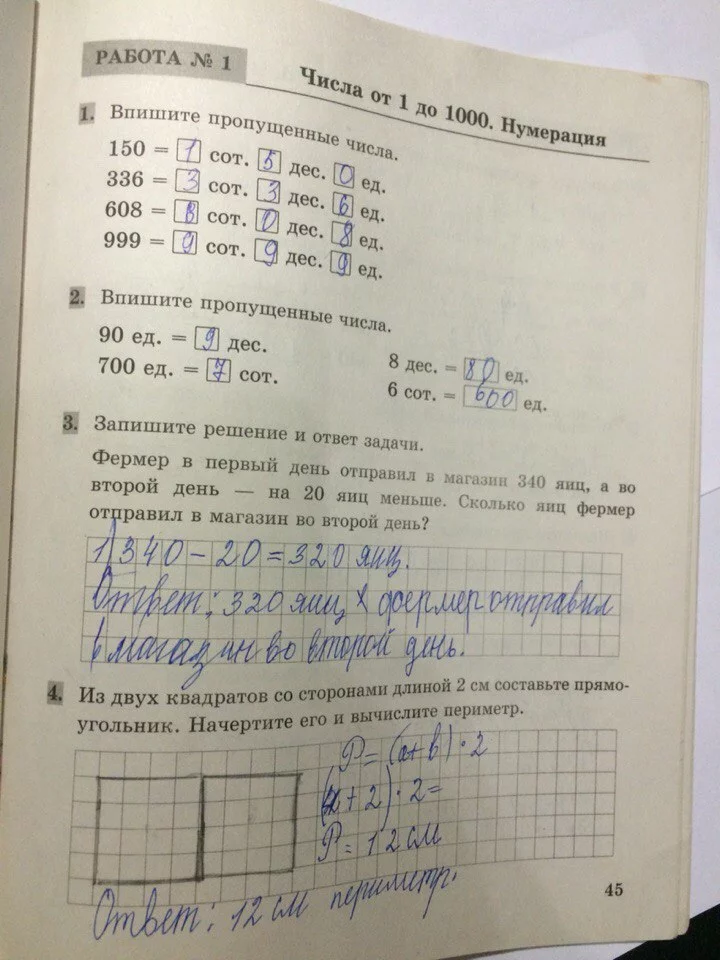 РАБОТА № 1
Числа от 1 до 1000. Нумерация
1. Впишите пропущенные числа.
150 = 1 сот. 5 дес. 0 ед.
336 = 3 сот. 3 дес. 6 ед.
608 = 6 сот. 0 дес. 8 ед.
999 = 9 сот. 9 дес. 9 ед.
2. Впишите пропущенные числа.
90 ед. = 9 дес.
700 ед. = 7 сот.
8 дес. = 80 ед.
6 сот. = 600 ед.
3. Запишите решение и ответ задачи.
Фермер в первый день отправил в магазин 340 яиц, а во
второй день — на 20 яиц меньше. Сколько яиц фермер
отправил в магазин во второй день?
1) 340 – 20 = 320 яиц.
Ответ: 320 яиц фермер отправил
в магазин во второй день.
4. Из двух квадратов со сторонами длиной 2 см составьте прямо-
угольник. Начертите его и вычислите периметр.
P = (a+b) · 2
(4+2) · 2 =
P = 12 см
Ответ: 12 см периметр.
45